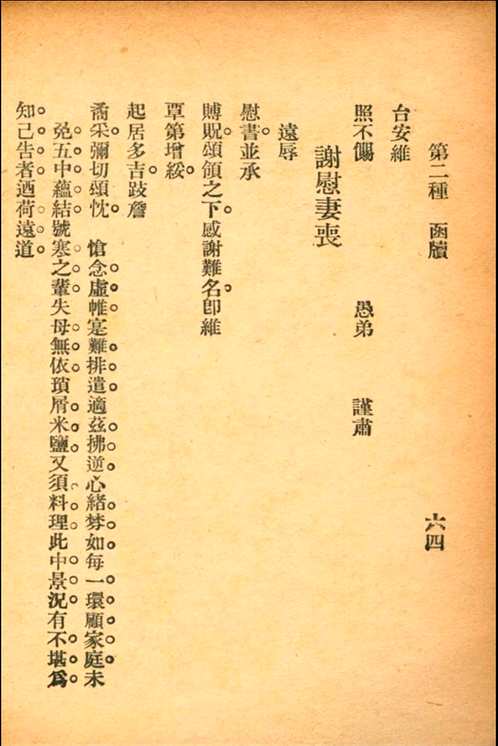 第二種　函牘　六四
台安維
照不儩　愚弟　謹肅
謝慰妻喪
遠辱
慰書並承
賻貺。頌領之下。感謝難名。卽維
覃第增綏。
起居多吉。跂詹
矞采。彌切頌忱。愴念虛帷。寔難排遣。適茲拂逆。心緒棼如。每一環顧家庭。未
免五中蘊結。號寒之輩。失母無依。瑣屑米鹽。又須料理。此中景況。有不堪爲
知己告者。迺荷遠道。